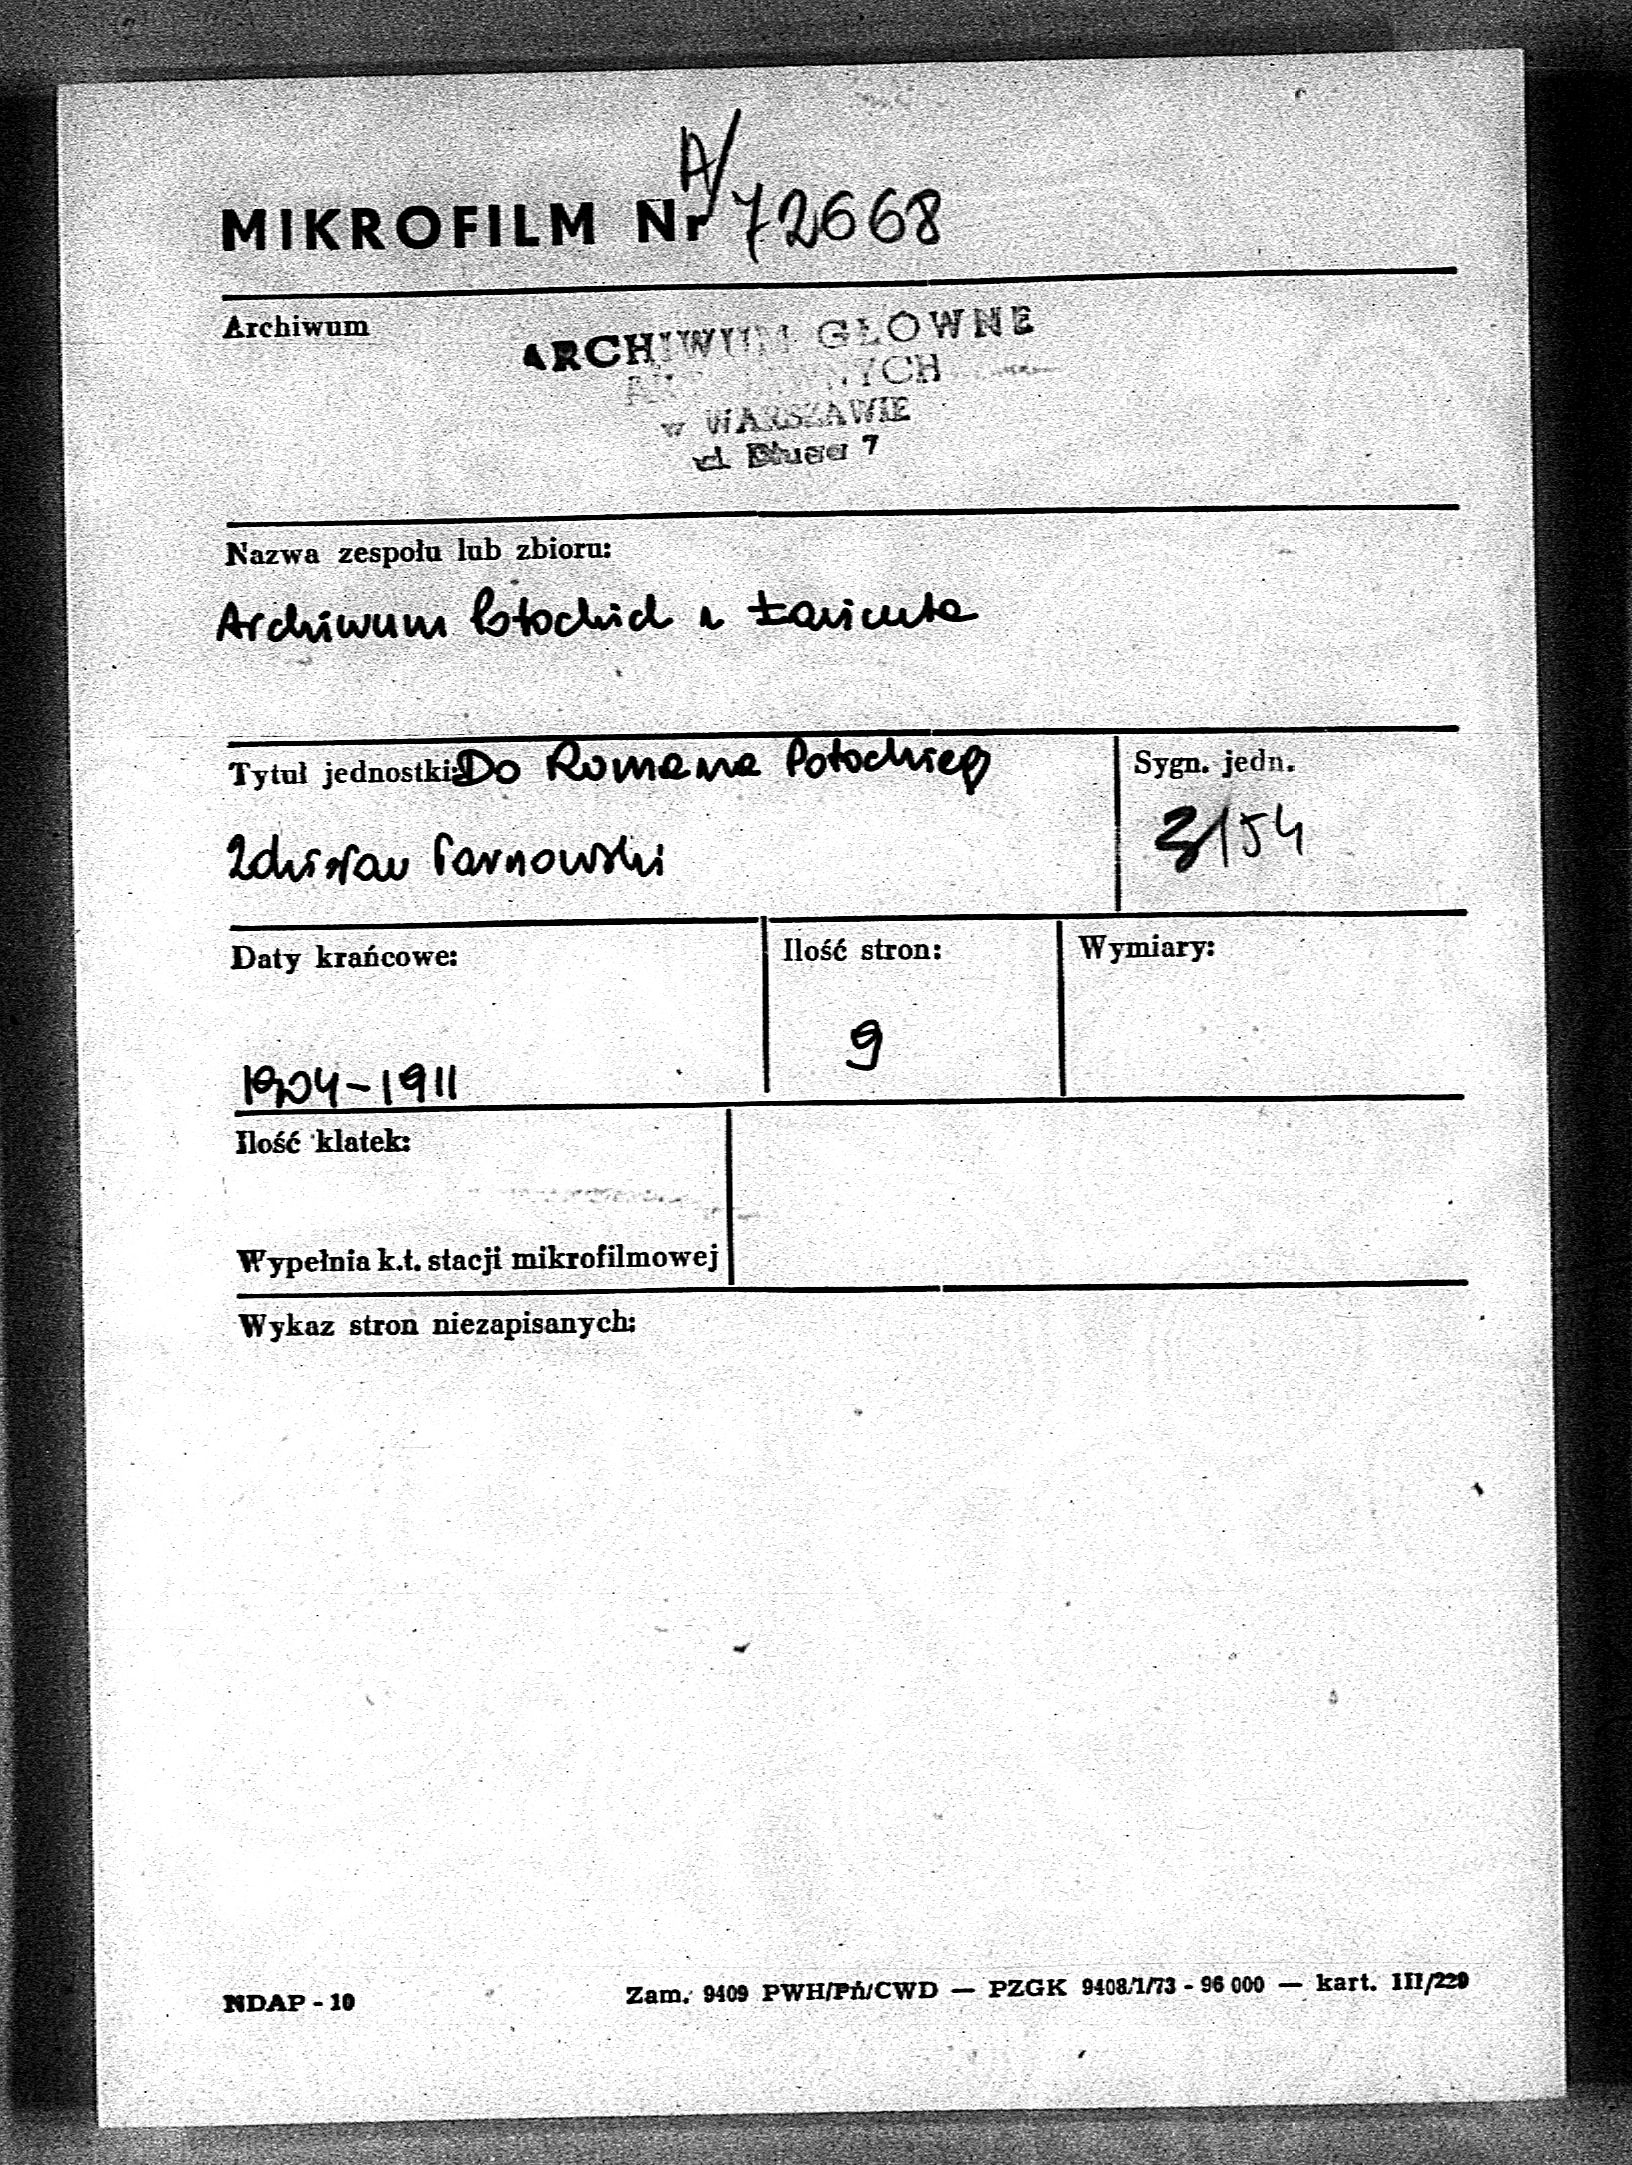 A/
MIKROFILM Nr 72668
Archiwum
ARCHIWUM GŁOWNE
w WARSZAWIE
ul. Długa 7
Nazwa zespołu lub zbioru:
Archiwum Potockich z Łańcuta
Tytuł jednostki: Do Romana Potockiego
Zdzisław Tarnowski
Sygn. jedn.
3/54
Daty krańcowe:
1904-1911
Ilość stron:
9
Wymiary:
Ilość klatek:
Wypełnia k.t. stacji mikrofilmowej
Wykaz stron niezapisanych:
NDAP - 10
Zam. 9409 PWH/Pń/CWD — PZGK 9408/1/73 - 96 000 — kart. III/220